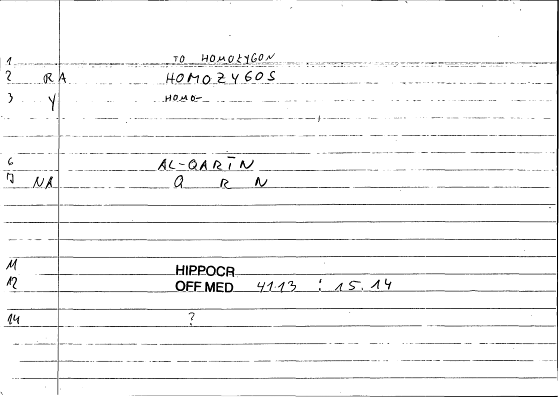 1 TO HOMOZYGON
2 RA HOMOZYGOS
3 Y HOMO-
6 AL-QARĪN
7 NA Q R N
11 HIPPOCR
12 OFF MED 41.13 : 15.14
14 ?